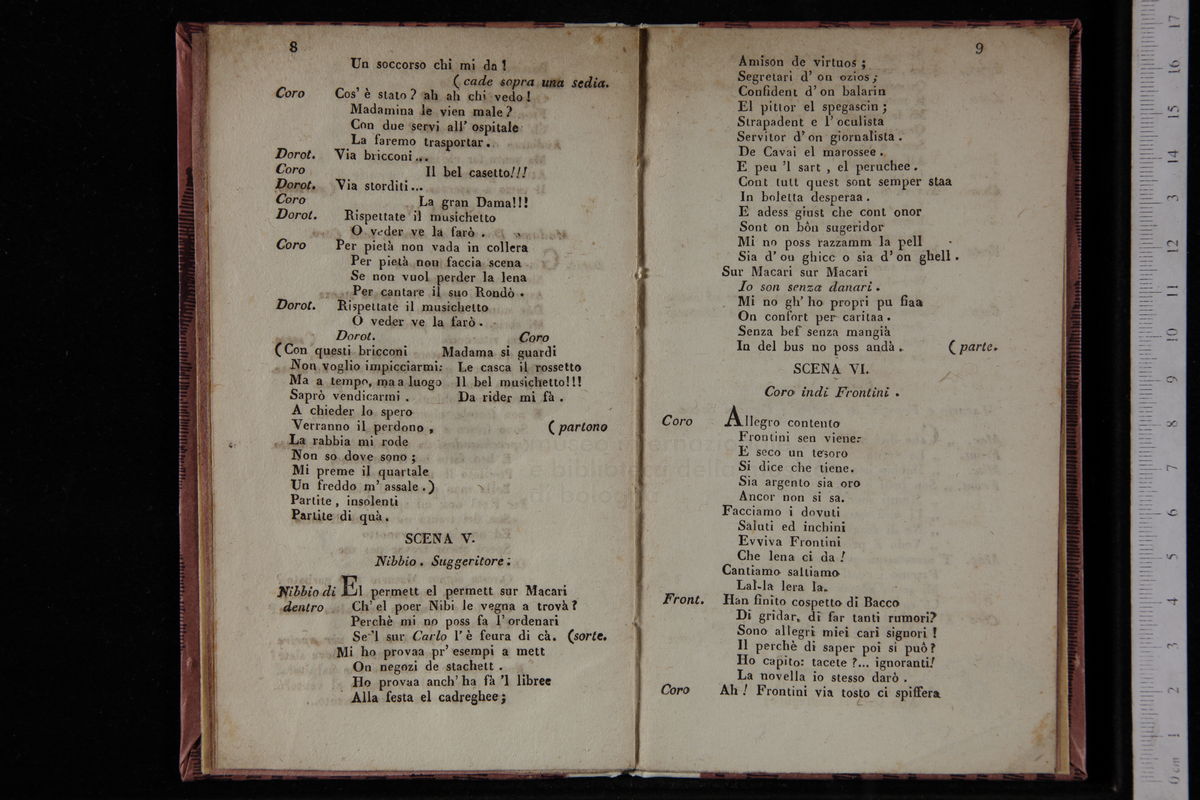 8
Un soccorso chi mi da !
( cade sopra una sedia.
Coro Cos' è stato ? ah ah chi vedo !
Madamina le vien male ?
Con due servi all' ospitale
La faremo trasportar .
Dorot. Via bricconi ...
Coro Il bel casetto!!!
Dorot. Via storditi ...
Coro La gran Dama!!!
Dorot. Rispettate il musichetto
O veder ve la farò .
Coro Per pietà non vada in collera
Per pietà non faccia scena
Se non vuol perder la lena
Per cantare il suo Rondò .
Dorot. Rispettate il musichetto
O veder ve la farò .
Dorot. Coro
( Con questi bricconi Madama si guardi
Non voglio impicciarmi: Le casca il rossetto
Ma a tempo, ma a luogo Il bel musichetto!!!
Saprò vendicarmi . Da rider mi fà .
A chieder lo spero
Verranno il perdono , ( partono
La rabbia mi rode
Non so dove sono ;
Mi preme il quartale
Un freddo m' assale . )
Partite , insolenti
Partite di quà .
SCENA V.
Nibbio . Suggeritore .
Nibbio di El permett el permett sur Macari
dentro Ch' el poer Nibi le vegna a trovà ?
Perchè mi no poss fa l' ordenari
Se 'l sur Carlo l' è feura di cà. (sorte.
Mi ho provaa pr' esempi a mett
On negozi de stachett .
Ho provaa anch' ha fà 'l libree
Alla festa el cadreghee ;
9
Amison de virtuos ;
Segretari d' on ozios ;
Confident d' on balarin
El pittor el spegascin ;
Strapadent e l' oculista
Servitor d' on giornalista .
De Cavai el marossee .
E peu 'l sart , el peruchee .
Cont tutt quest sont semper staa
In boletta desperaa .
E adess giust che cont onor
Sont on bôn sugeridor
Mi no poss razzamm la pell
Sia d' on ghicc o sia d' on ghell .
Sur Macari sur Macari
Io son senza danari .
Mi no gh' ho propri pu fiaa
On confort per caritaa .
Senza bef senza mangià
In del bus no poss andà . ( parte.
SCENA VI.
Coro indi Frontini .
Coro Allegro contento
Frontini sen viene:
E seco un tesoro
Si dice che tiene.
Sia argento sia oro
Ancor non si sa.
Facciamo i dovuti
Saluti ed inchini
Evviva Frontini
Che lena ci da !
Cantiamo saltiamo
Lal-la lera la.
Front. Han finito cospetto di Bacco
Di gridar, di far tanti rumori?
Sono allegri miei cari signori !
Il perchè di saper poi si può ?
Ho capito: tacete ?... ignoranti!
La novella io stesso darò .
Coro Ah ! Frontini via tosto ci spiffera